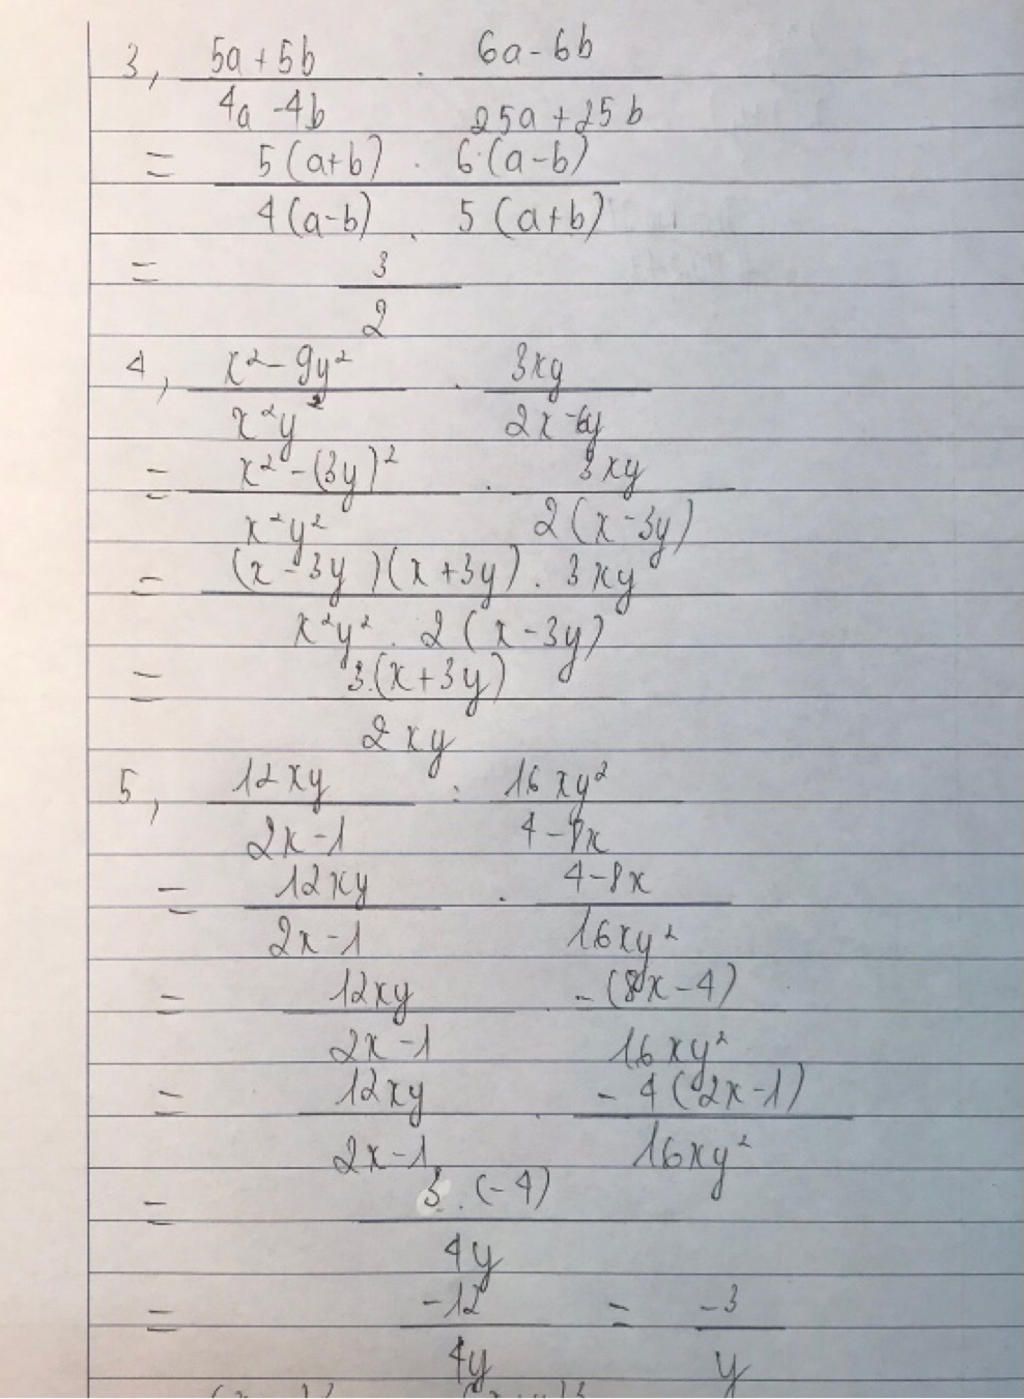 3, (5a + 5b)/(4a - 4b) . (6a - 6b)/(25a + 25b)
= (5(a+b) . 6(a-b))/(4(a-b) . 5(a+b))
= 3/2
4, (x² - 9y²)/(x²y²) . 3xy/(2x - 6y)
= (x² - (3y)²)/(x²y²) . 3xy/(2(x - 3y))
= ((x - 3y)(x + 3y) . 3xy)/(x²y² . 2(x - 3y))
= 3.(x + 3y)/(2xy)
5, 12xy/(2x - 1) : 16xy²/(4 - 8x)
= 12xy/(2x - 1) . (4 - 8x)/(16xy²)
= 12xy/(2x - 1) -(8x - 4)/(16xy²)
= 12xy/(2x - 1) . -4(2x - 1)/(16xy²)
= 3 . (-4)/(4y)
= -12/(4y) = -3/y